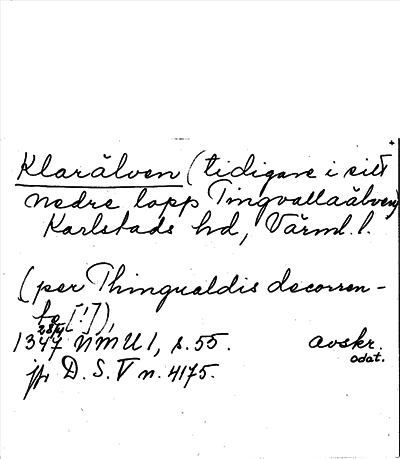 Klarälven (tidigare i sitt
nedre lopp Tingvallaälven)
Karlstads hd, Värml. l.
(per Thingualdis decorren-
to [!]),
28/4
1347 NMU 1, s. 55. avskr.
odat.
jfr D. S. V n. 4175.